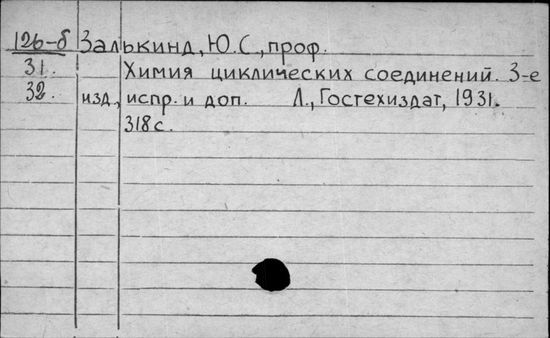 126-б Залькинд, Ю.С., проф.
31. Химия циклических соединений. 3-е
32. изд., испр. и доп. Л., Гостехиздат, 1931.
318 с.